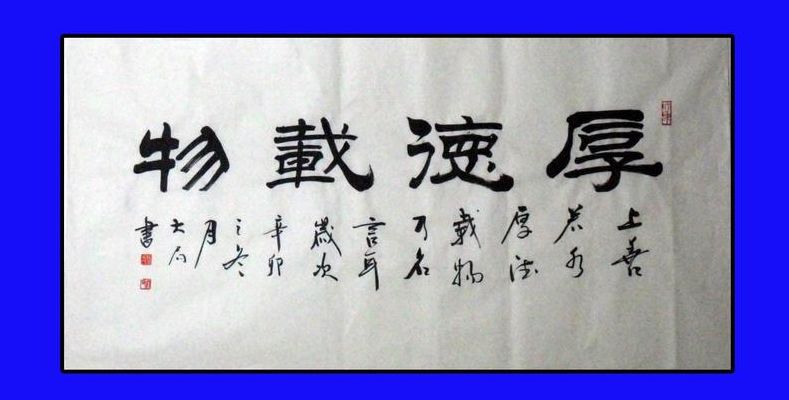 厚德載物
上善
若水
厚德
載物
名
言耳
歲次
辛卯
之冬
月
大石
書